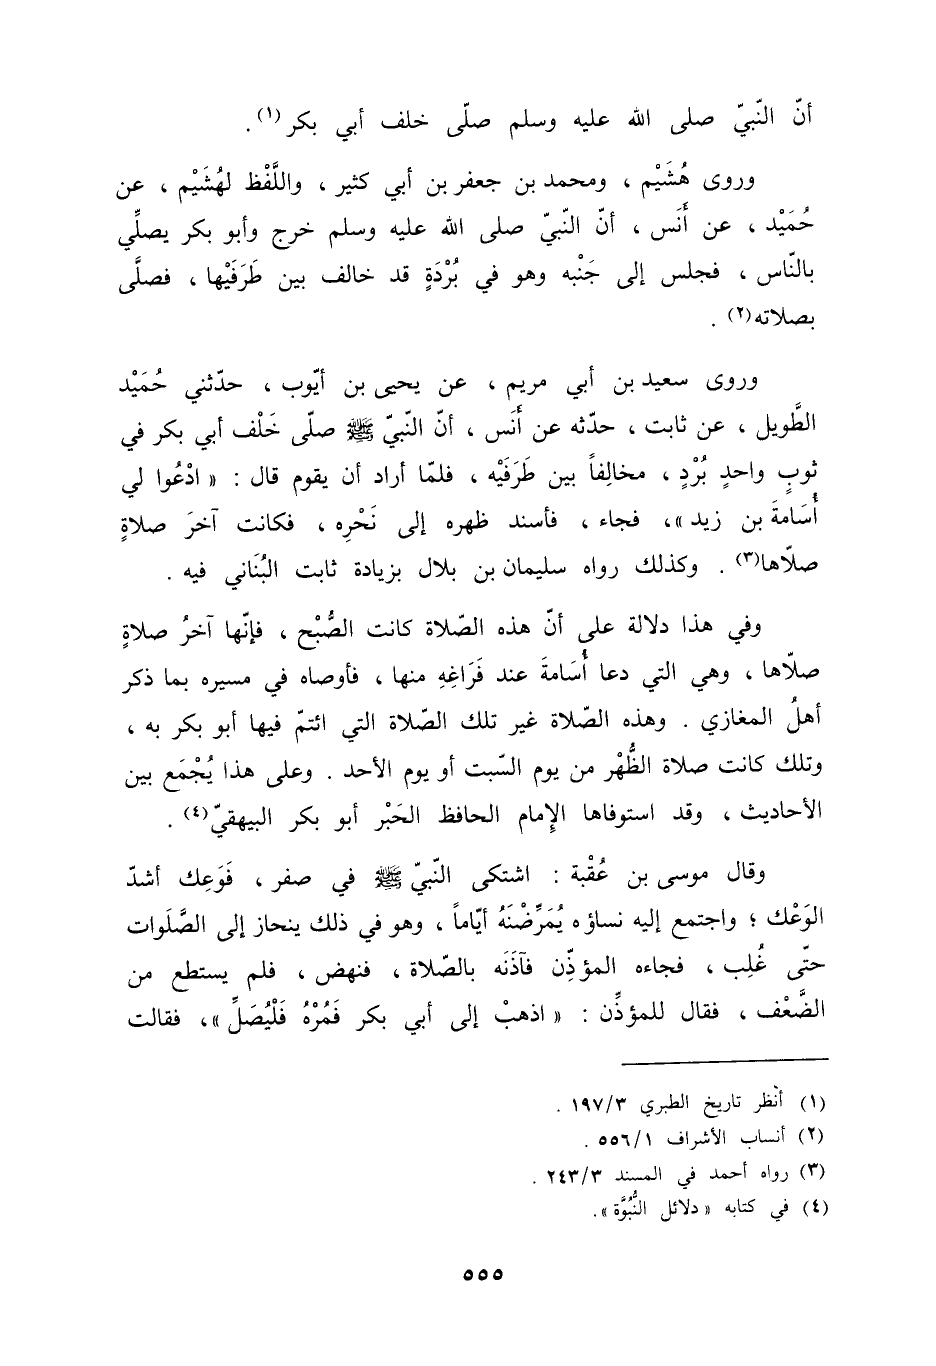 أنّ النّبيّ صلى الله عليه وسلم صلّى خلف أبي بكر (١) .
وروى هُشَيْم ، ومحمد بن جعفر بن أبي كثير ، واللَّفْظ لهُشَيْم ، عن
حُمَيْد ، عن أَنَس ، أنّ النّبيّ صلى الله عليه وسلم خرج وأبو بكر يصلِّي
بالنّاس ، فجلس إلى جَنْبه وهو في بُرْدَةٍ قد خالف بين طَرَفَيْها ، فصلَّى
بصلاته (٢) .
وروى سعيد بن أبي مريم ، عن يحيى بن أيّوب ، حدّثني حُمَيْد
الطَّويل ، عن ثابت ، حدّثه عن أَنَس ، أنّ النّبيّ ﷺ صلّى خَلْف أبي بكر في
ثوبٍ واحدٍ بُرْدٍ ، مخالِفاً بين طَرَفَيْه ، فلمّا أراد أن يقوم قال : « ادْعُوا لي
أُسَامةَ بن زيد »، فجاء ، فأسند ظهره إلى نَحْرِه ، فكانت آخرَ صلاةٍ
صلّاها (٣) . وكذلك رواه سليمان بن بلال بزيادة ثابت البُنَاني فيه .
وفي هذا دلالة على أنّ هذه الصّلاة كانت الصُّبْح ، فإنّها آخرُ صلاةٍ
صلّاها ، وهي التي دعا أُسَامةَ عند فَرَاغِهِ منها ، فأوصاه في مسيره بما ذكر
أهلُ المغازي . وهذه الصّلاة غير تلك الصّلاة التي ائتمّ فيها أبو بكر به ،
وتلك كانت صلاة الظُّهْر من يوم السّبت أو يوم الأحد . وعلى هذا يُجْمَع بين
الأحاديث ، وقد استوفاها الإمام الحافظ الحَبْر أبو بكر البيهقيّ (٤) .
وقال موسى بن عُقْبة : اشتكى النّبيّ ﷺ في صفر ، فَوَعِك أشدّ
الوَعْك ؛ واجتمع إليه نساؤه يُمَرِّضْنَهُ أيّاماً ، وهو في ذلك ينحاز إلى الصَّلَوات
حتّى غُلِب ، فجاءه المؤذِّن فآذَنَه بالصّلاة ، فنهض ، فلم يستطع من
الضَّعْف ، فقال للمؤذِّن : « اذهبْ إلى أبي بكر فَمُرْهُ فَلْيُصَلِّ »، فقالت
(١) أنظر تاريخ الطبري ٣/١٩٧ .
(٢) أنساب الأشراف ١/٥٥٦ .
(٣) رواه أحمد في المسند ٣/٢٤٣ .
(٤) في كتابه « دلائل النُّبُوَّة ».
٥٥٥